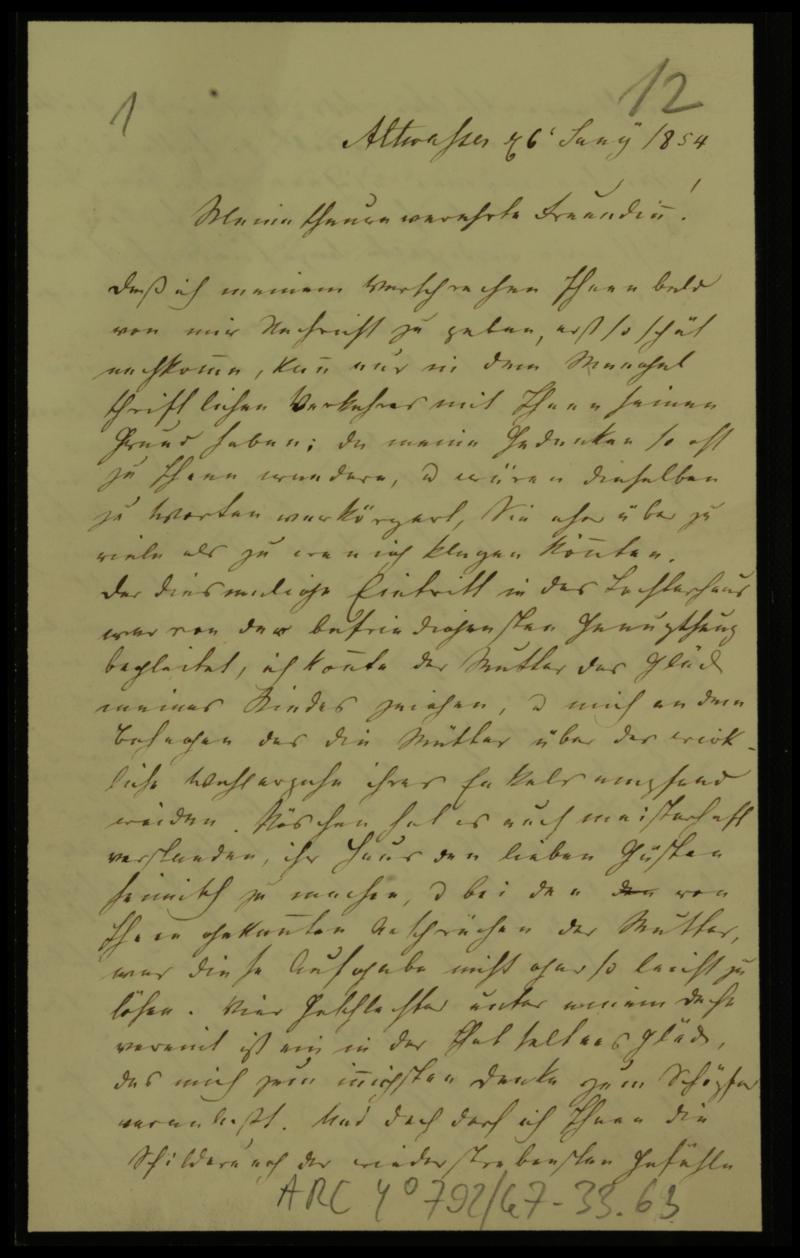 1
12
Altwasser 26' Juny 1854
Meine theure verehrte Freundin!
Daß ich meinem Versprechen Ihnen bald
von mir Nachricht zu geben, erst so spät
nachkome, kañ nur in dem Mangel
schriftlichen Verkehres mit Ihnen seinen
Grund haben; da meine Gedanken so oft
zu Ihnen wandern, u wären dieselben
zu Worten verkörpert, Sie eher über zu
viele als zu wenig klagen köñten.
Der diesmalige Eintritt in das Tochterhaus
war von der befriedigensten
begleitet, ich koñte der Mutter das Glück
meines Kindes zeigen, u mich an dem
Behagen das die Mutter über das wirk-
liche Wohlergehn ihres Enkels empfand
weiden. Röschen hat es auch meisterhaft
verstanden, ihr Haus den lieben Gästen
heimisch zu machen, u bei den den von
Ihnen gekañten Ansprüchen der Mutter,
war diese Aufgabe nicht gar so leicht zu
lösen. Vier Geschlechter unter einem Dache
vereint ist ein in der That seltnes Glück,
das mich zum iñigsten Danke zum Schöpfer
veranlaßt. Und doch darf ich Ihnen die
Schilderung der Gefühle
ARC 4° 792/G7-33.63